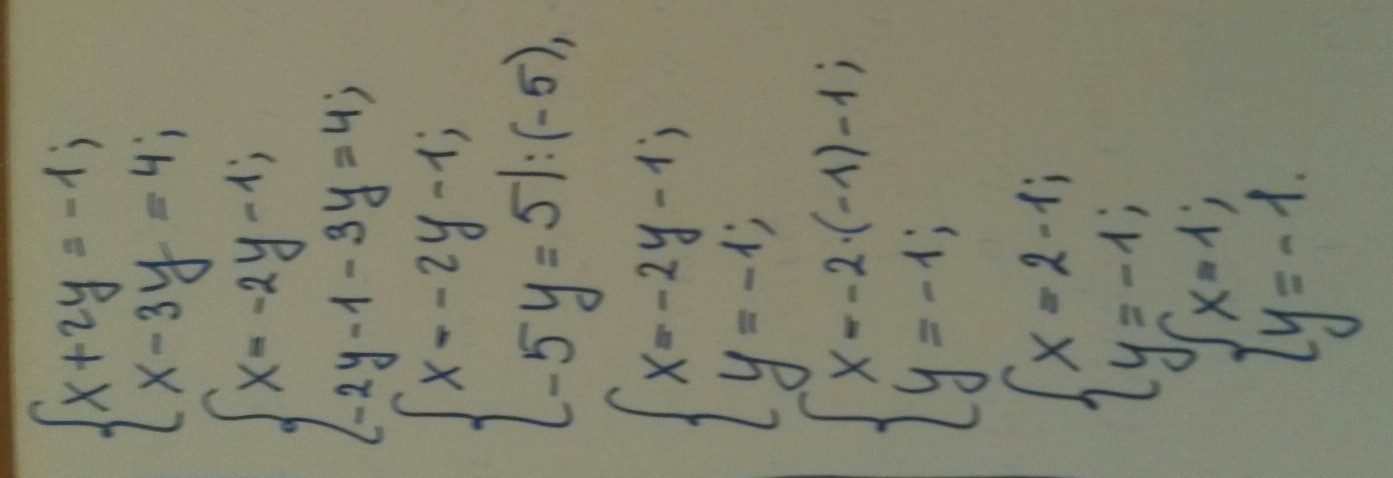 {x+2y=-1;
x-3y=4;
{x=-2y-1;
-2y-1-3y=4;
{x=-2y-1;
-5y=5|:(-5),
{x=-2y-1;
y=-1;
{x=-2·(-1)-1;
y=-1;
{x=2-1;
y=-1;
{x=1;
y=-1.